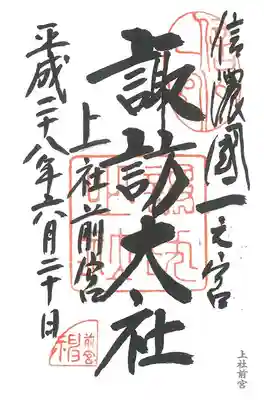 信濃國一之宮
諏訪大社
上社前宮
平成二十八年六月二十日
前宮
上社前宮